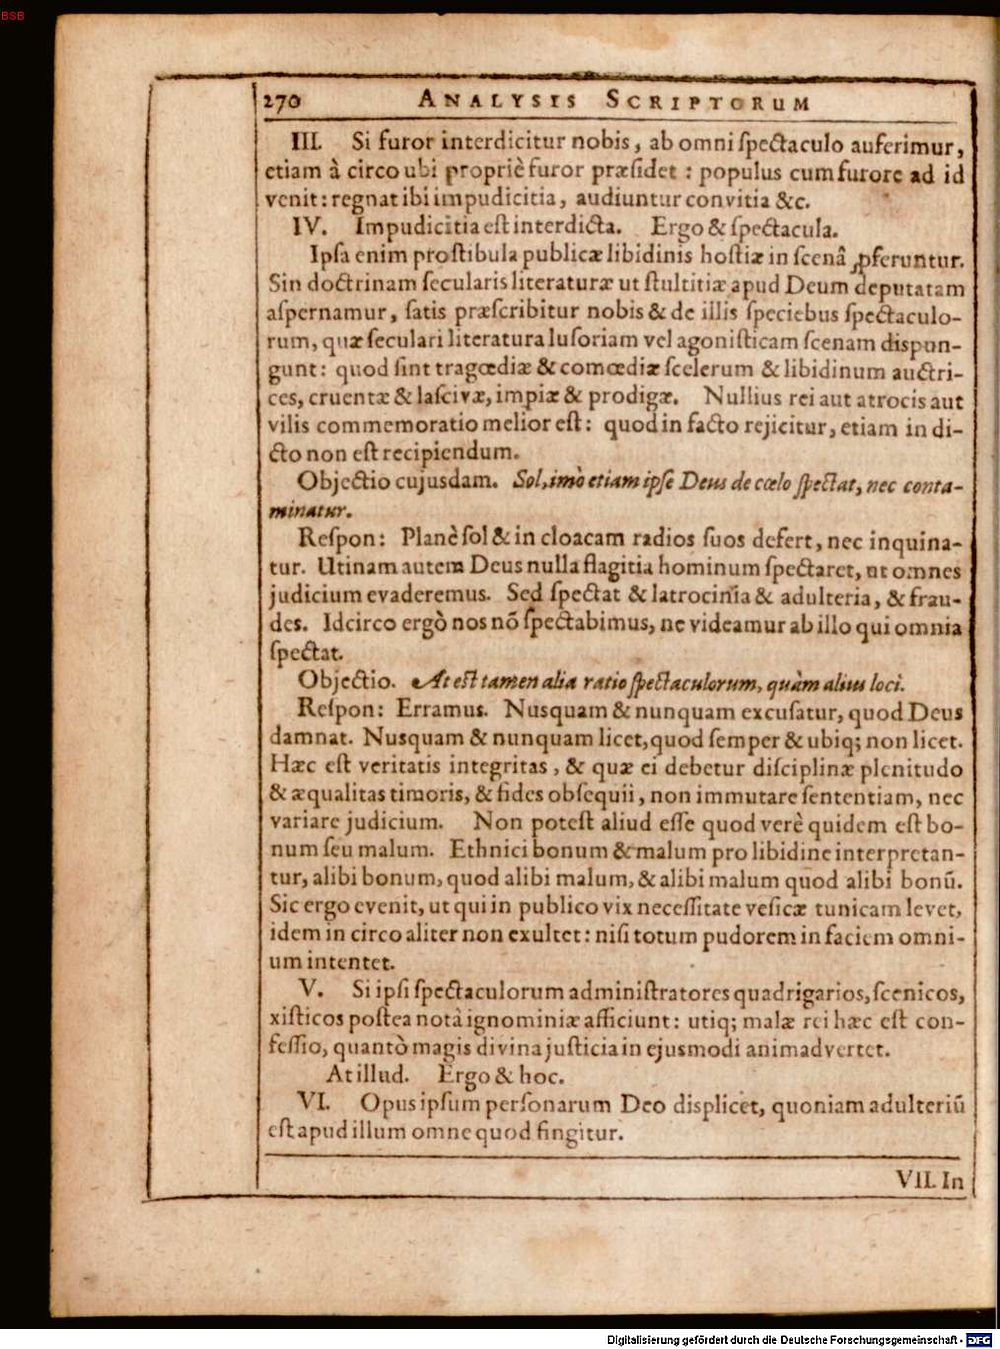 BSB
270 ANALYSIS SCRIPTORUM
III. Si furor interdicitur nobis, ab omni ſpectaculo auferimur,
etiam à circo ubi propriè furor præſidet : populus cum furore ad id
venit : regnat ibi impudicitia, audiuntur convitia &c.
IV. Impudicitia eſt interdicta. Ergo & ſpectacula.
Ipſa enim proſtibula publicæ libidinis hoſtiæ in ſcenâ ꝓferuntur.
Sin doctrinam ſecularis literaturæ ut ſtultitiæ apud Deum deputatam
aſpernamur, ſatis præſcribitur nobis & de illis ſpeciebus ſpectaculo-
rum, quæ ſeculari literatura luſoriam vel agoniſticam ſcenam diſpun-
gunt : quod ſint tragœdiæ & comœdiæ ſcelerum & libidinum auctri-
ces, cruentæ & laſcivæ, impiæ & prodigæ. Nullius rei aut atrocis aut
vilis commemoratio melior eſt : quod in facto rejicitur, etiam in di-
cto non eſt recipiendum.
Objectio cujusdam. Sol, imò etiam ipſe Deus de cœlo ſpectat, nec conta-
minatur.
Reſpon : Planè ſol & in cloacam radios ſuos defert, nec inquina-
tur. Utinam autem Deus nulla flagitia hominum ſpectaret, ut omnes
judicium evaderemus. Sed ſpectat & latrocinia & adulteria, & frau-
des. Idcirco ergò nos nõ ſpectabimus, ne videamur ab illo qui omnia
ſpectat.
Objectio. At eſt tamen alia ratio ſpectaculorum, quàm alius loci.
Reſpon : Erramus. Nusquam & nunquam excuſatur, quod Deus
damnat. Nusquam & nunquam licet, quod ſemper & ubiq; non licet.
Hæc eſt veritatis integritas, & quæ ei debetur diſciplinæ plenitudo
& æqualitas timoris, & fides obſequii, non immutare ſententiam, nec
variare judicium. Non poteſt aliud eſſe quod verè quidem eſt bo-
num ſeu malum. Ethnici bonum & malum pro libidine interpretan-
tur, alibi bonum, quod alibi malum, & alibi malum quod alibi bonũ.
Sic ergo evenit, ut qui in publico vix neceſſitate veſicæ tunicam levet,
idem in circo aliter non exultet : niſi totum pudorem in faciem omni-
um intentet.
V. Si ipſi ſpectaculorum adminiſtratores quadrigarios, ſcenicos,
xiſticos poſtea notà ignominiæ afficiunt : utiq; malæ rei hæc eſt con-
feſſio, quantò magis divina juſticia in ejusmodi animadvertet.
At illud. Ergo & hoc.
VI. Opus ipſum perſonarum Deo displicet, quoniam adulteriũ
eſt apud illum omne quod fingitur.
VII. In
Digitalisierung gefördert durch die Deutsche Forschungsgemeinschaft - DFG